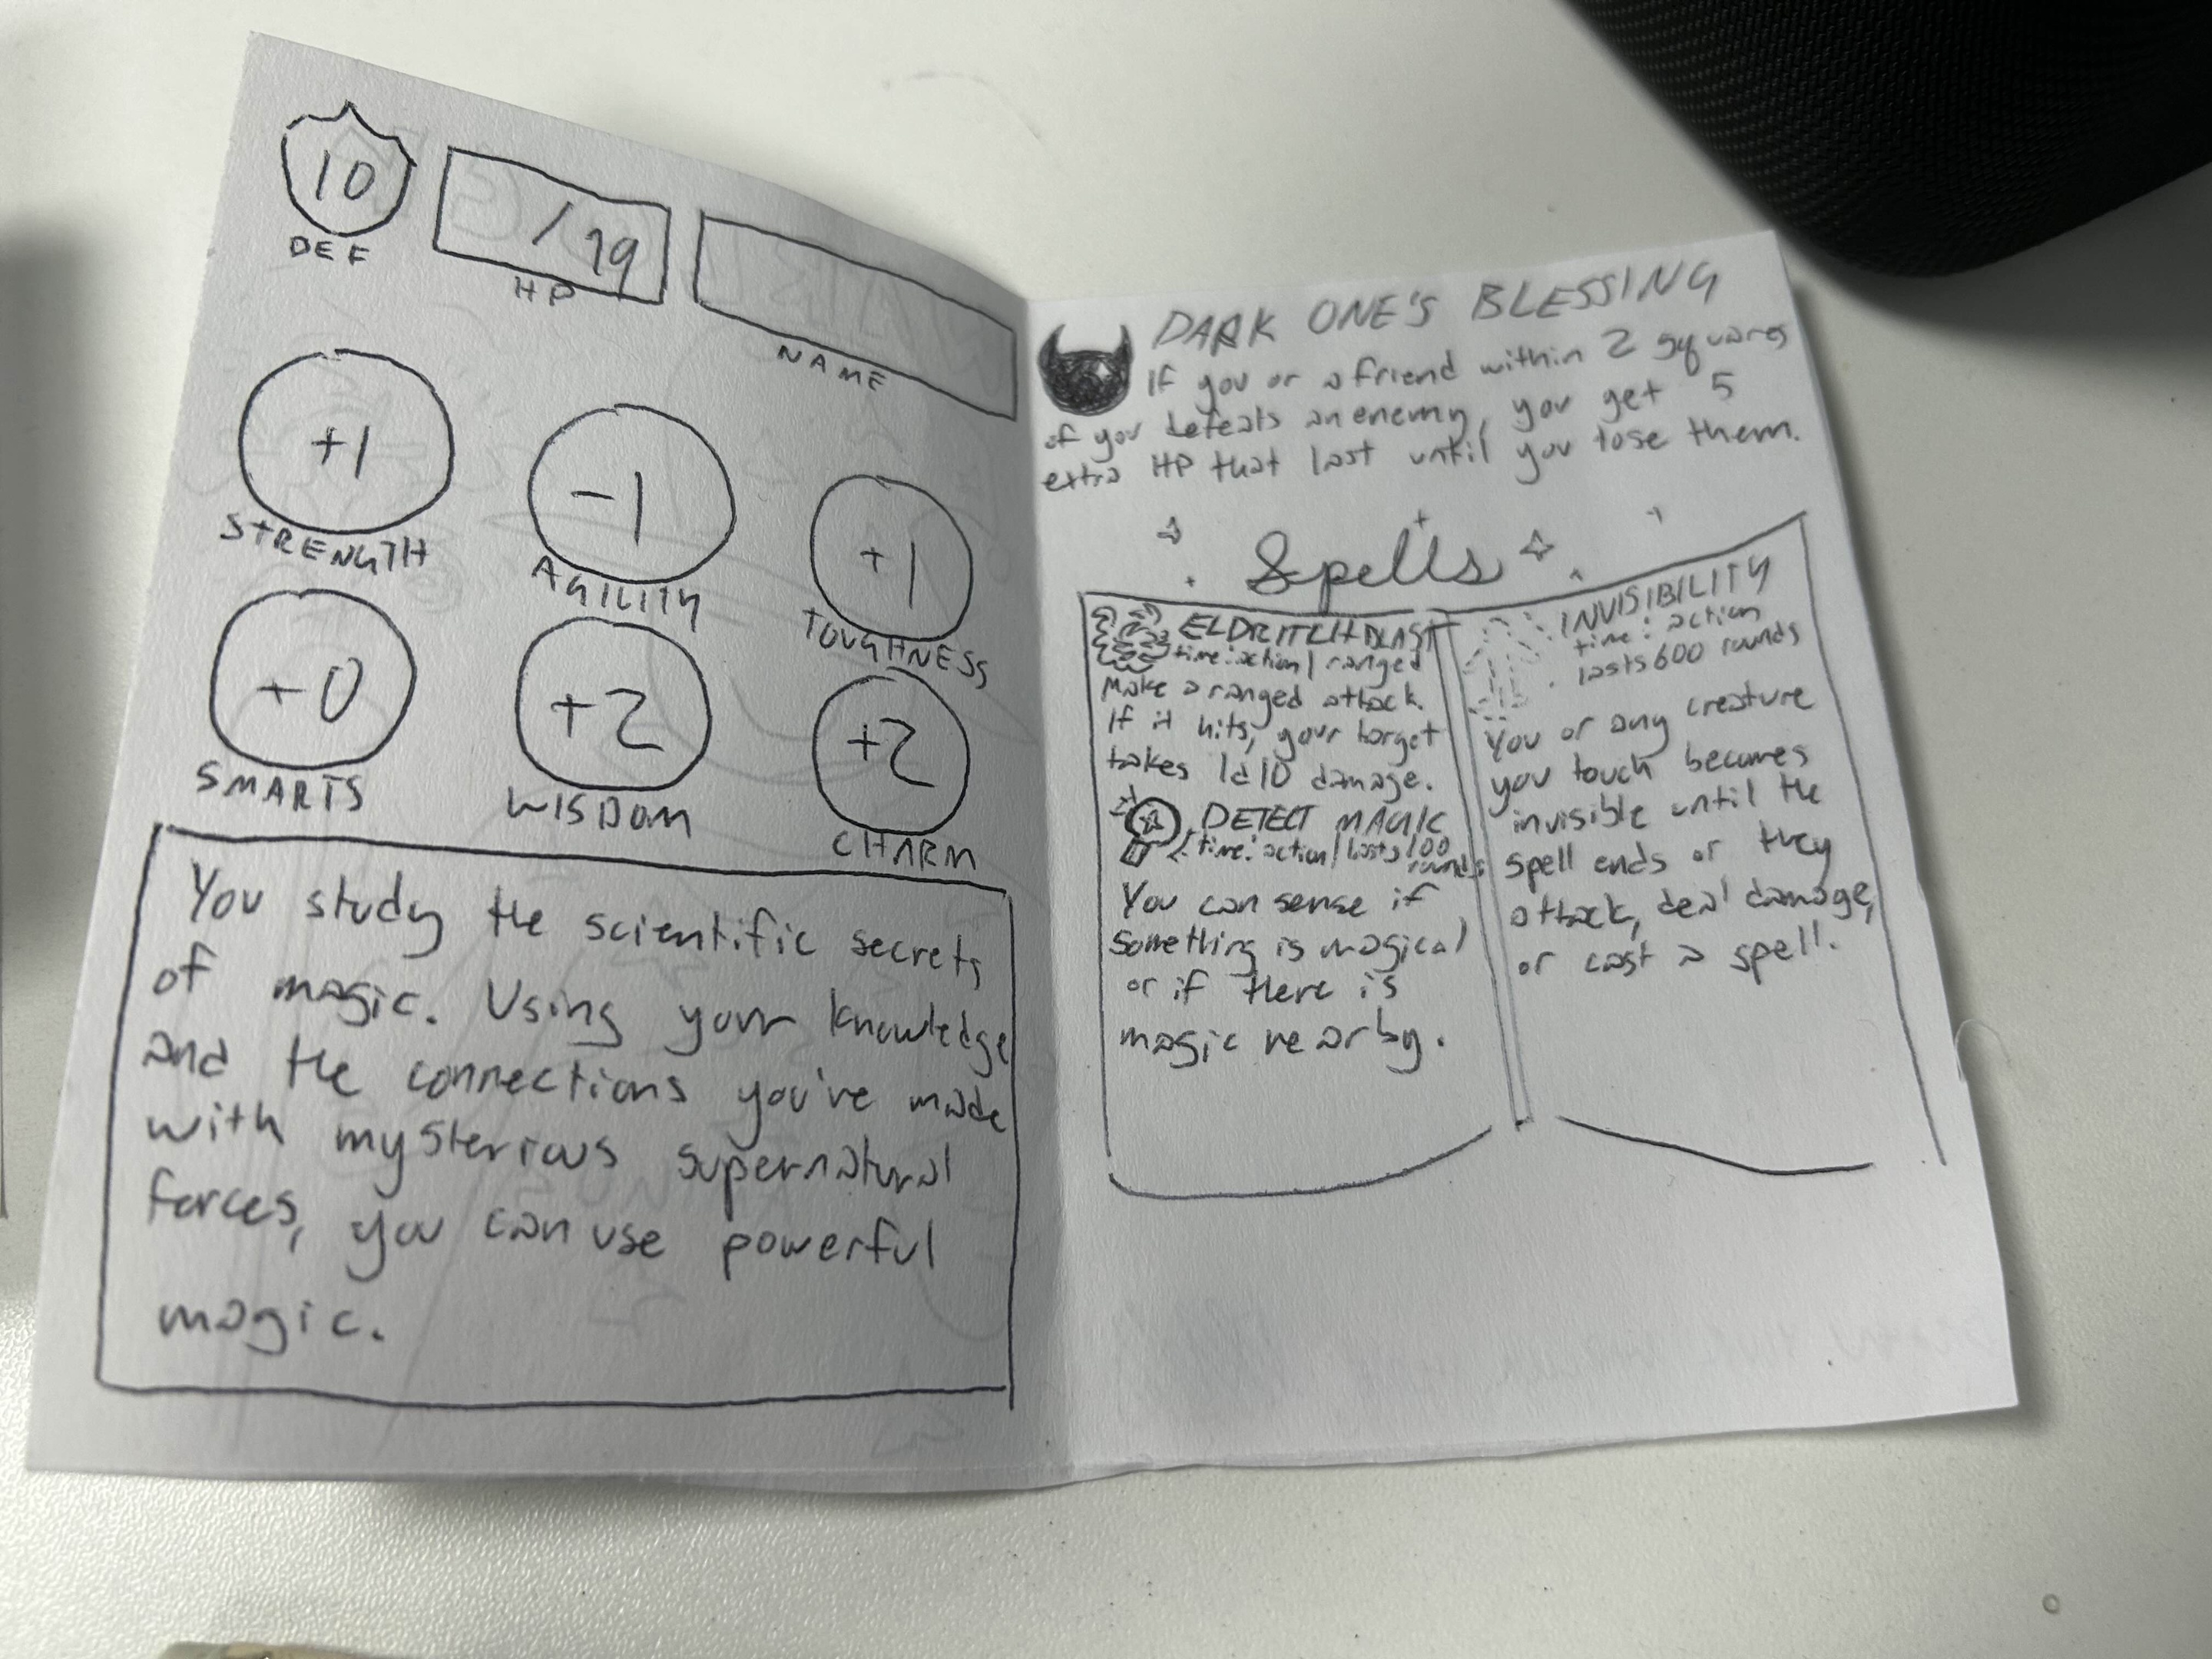 10
DEF
/19
HP
NAME
+1
STRENGTH
-1
AGILITY
+1
TOUGHNESS
+0
SMARTS
+2
WISDOM
+2
CHARM
You study the scientific secrets
of magic. Using your knowledge
and the connections you've made
with mysterious supernatural
forces, you can use powerful
magic.
DARK ONE'S BLESSING
If you or a friend within 2 squares
of you defeats an enemy, you get 5
extra HP that last until you lose them.
Spells
ELDRITCH BLAST
time: action | ranged
Make a ranged attack.
If it hits, your target
takes 1d10 damage.
DETECT MAGIC
time: action | lasts 100
rounds
You can sense if
something is magical
or if there is
magic nearby.
INVISIBILITY
time: action
lasts 600 rounds
You or any creature
you touch becomes
invisible until the
spell ends or they
attack, deal damage,
or cast a spell.